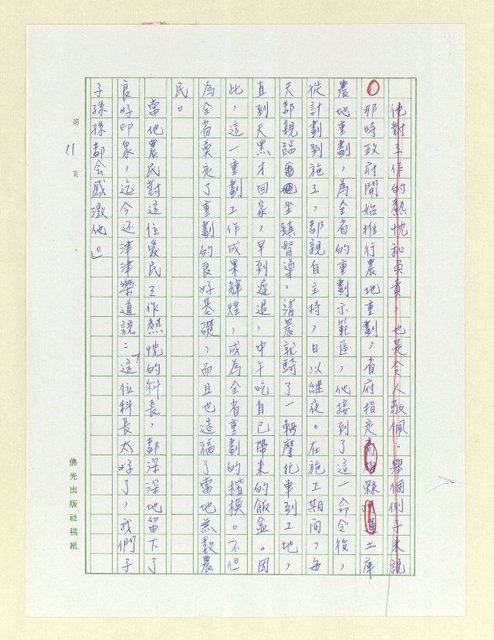 他對工作的熱忱和負責，也是令人敬佩，舉個例子來說
那時政府開始推行農地重劃，省府指定縣土庫
農地重劃，為全省的重劃示範區，他接到了這一命令後，
從計劃到施工，都親自主持，日以繼夜。在施工期間，每
天都親臨坐鎮督導，清晨就騎了一輛摩托車到工地，
直到天黑才回家，早到遲退，中午吃自己帶來的飯盒。因
此，這一重劃工作成果輝煌，成為全省重劃的楷模。不但
為全省奠定了重劃的良好基礎，而且也造福了當地無數農
民。
當地農民對這位農民工作熱忱的科長，都深深地留下了
良好印象，迄今還津津樂道說：「這位科長太好了，我們子
子孫孫都會感激他。」
第 11 頁
佛光出版社稿紙